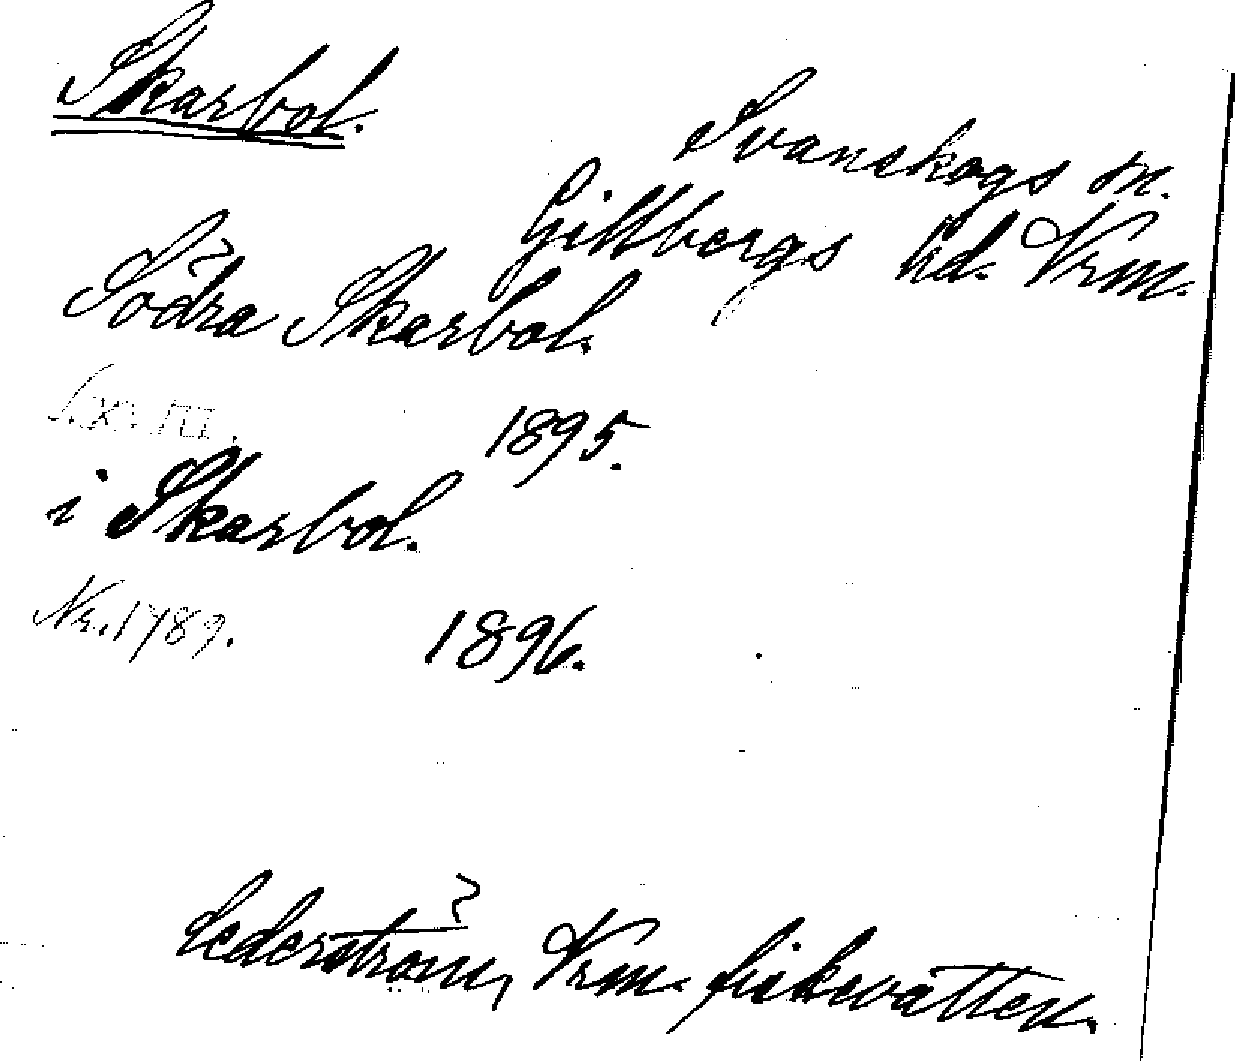 Skarbol.
Svanskogs sn.
Gillbergs hd. Vrm.
Södra Skarbol.
S. XXVIII. 1895.
i Skarbol.
Nr. 1789. 1896.
Cederström, Vrm. fiskevatten.